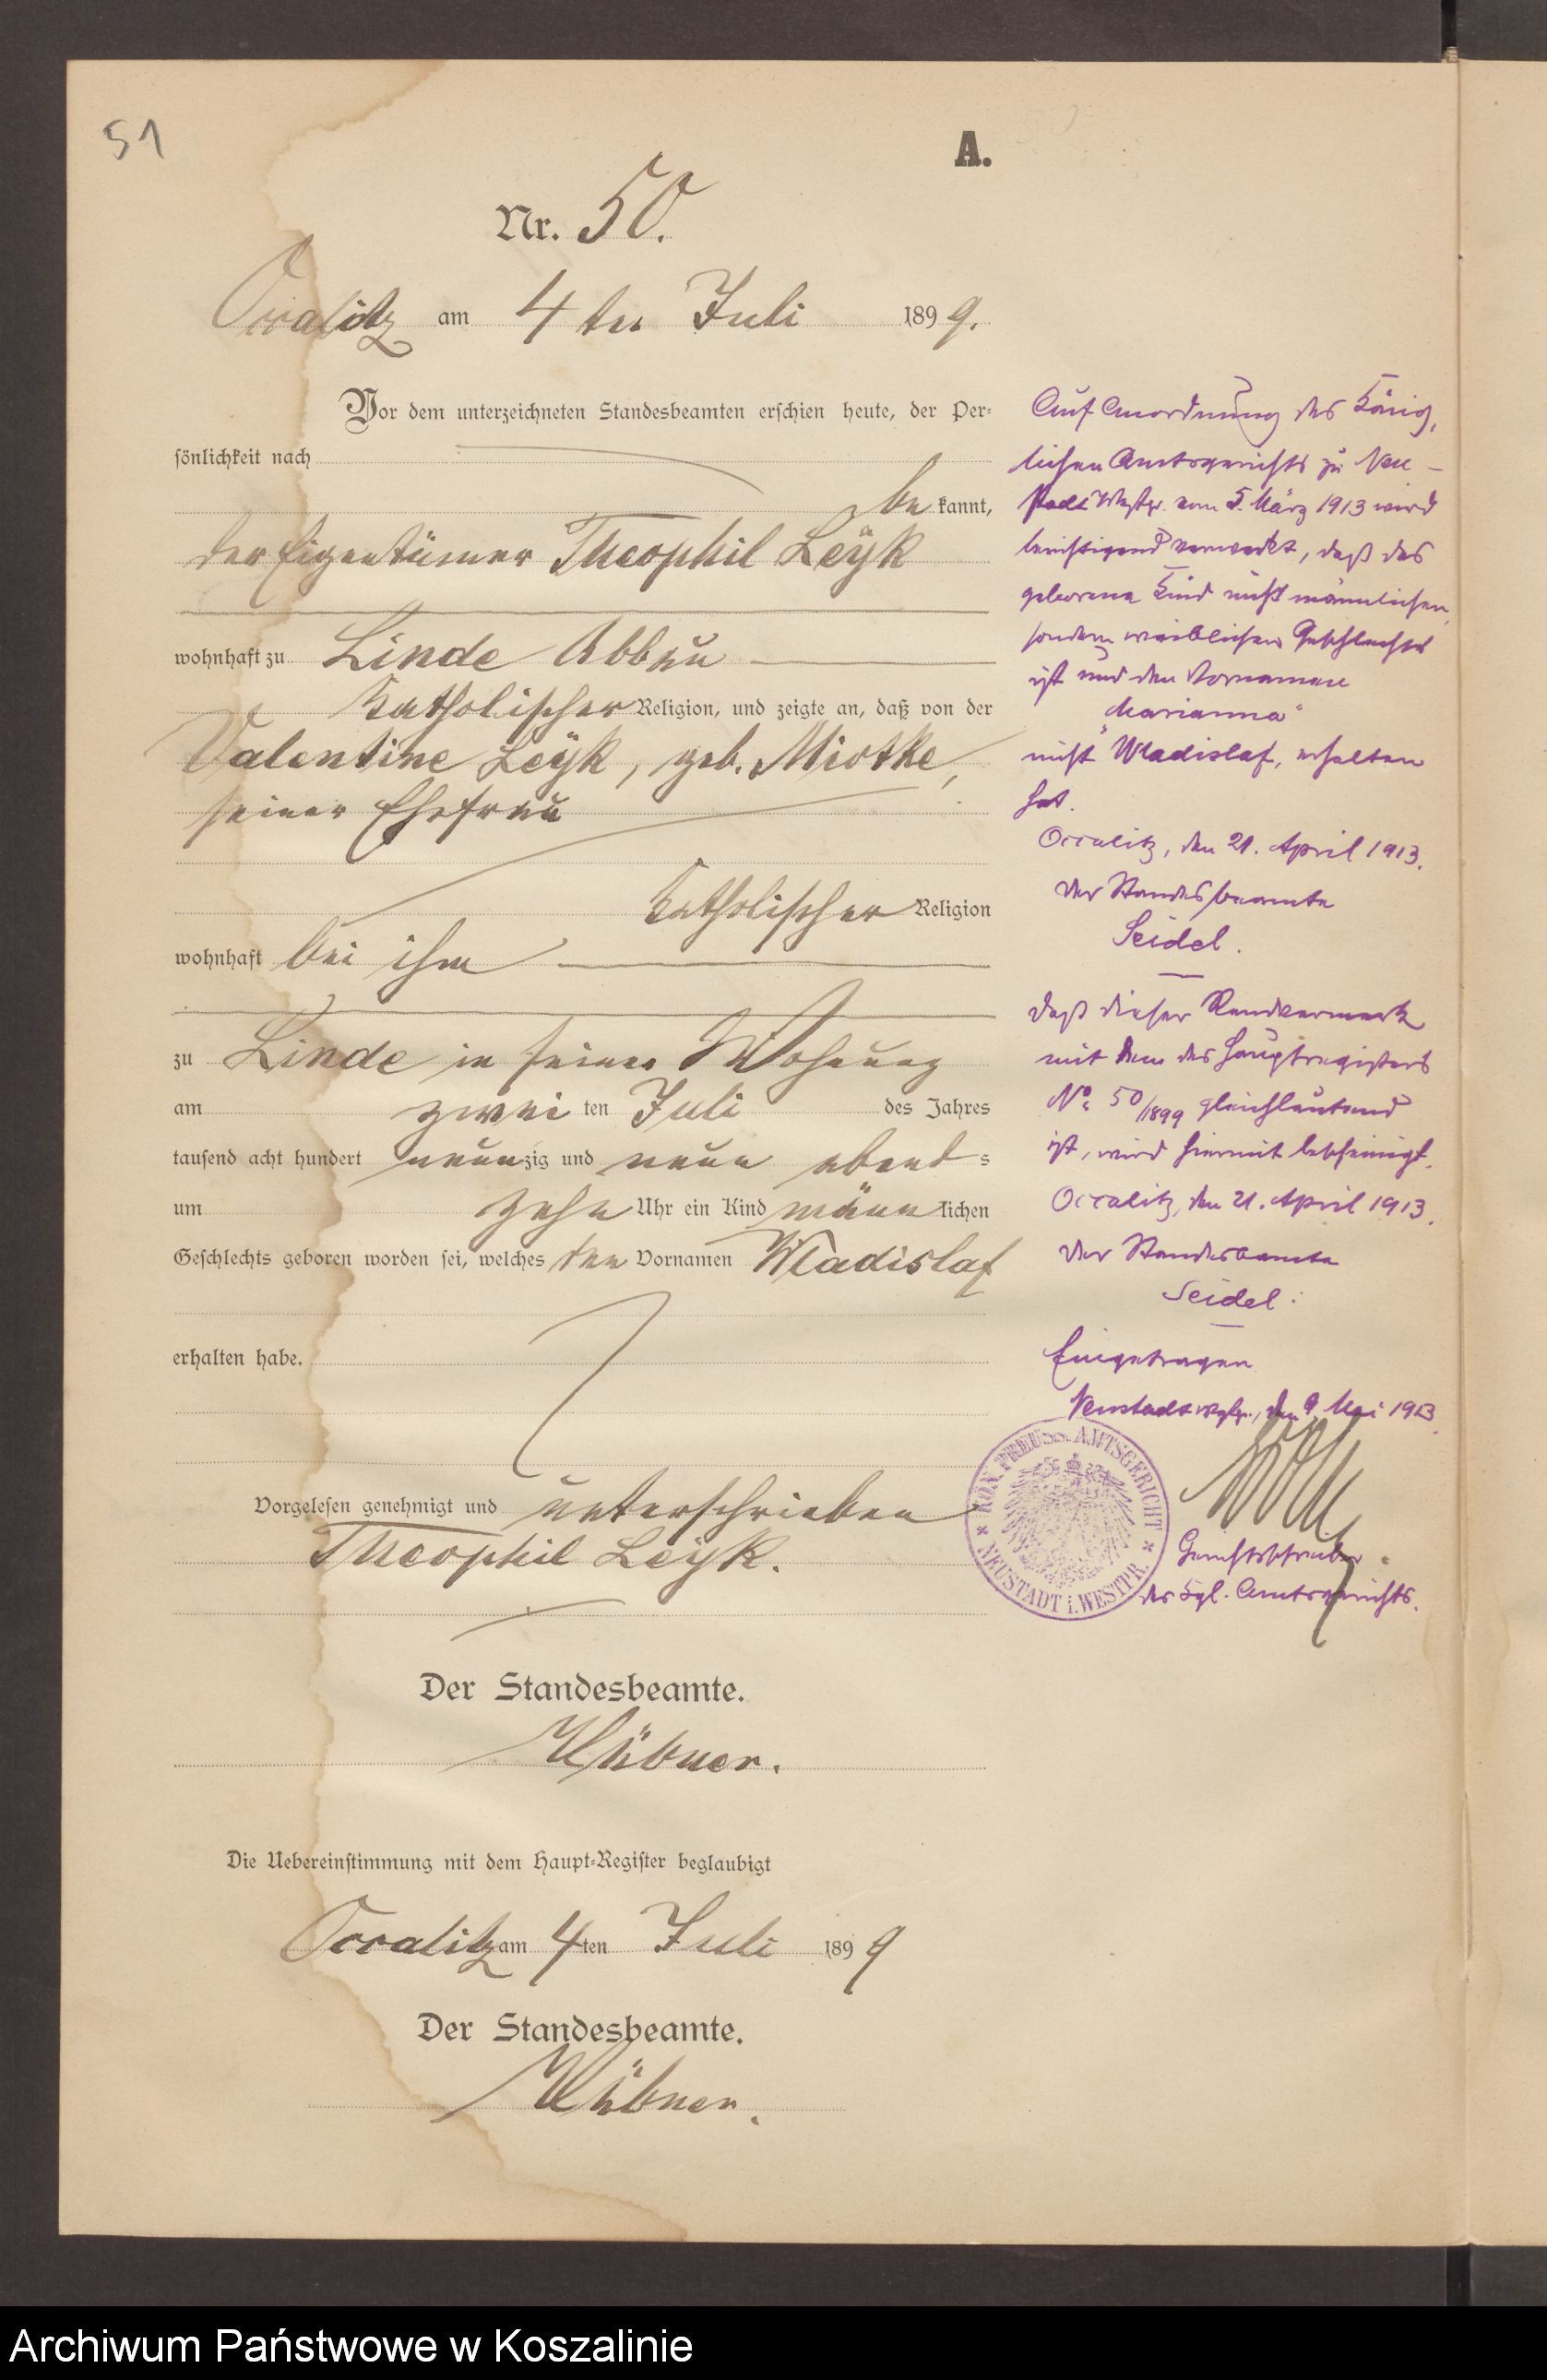 51
A.
Nr. 50.
Occalitz am 4 ten Juli 1899.
Vor dem unterzeichneten Standesbeamten erschien heute, der Per=
sönlichkeit nach
be kannt,
der Eigentümer Theophil Leÿk
wohnhaft zu Linde Abbau
katholischer Religion, und zeigte an, daß von der
Valentine Leÿk, geb. Miotke,
seiner Ehefrau
katholischer Religion
wohnhaft bei ihm
zu Linde in seiner Wohnung
am zwei ten Juli des Jahres
tausend acht hundert neunzig und neun abends
um zehn Uhr ein Kind männlichen
Geschlechts geboren worden sei, welches den Vornamen Wladislaf
erhalten habe.
Vorgelesen genehmigt und unterschrieben
Theophil Leÿk.
Der Standesbeamte.
Hübner.
Die Uebereinstimmung mit dem Haupt=Register beglaubigt
Occalitz am 4ten Juli 1899
Der Standesbeamte.
Hübner.
Auf Anordnung des König,
lichen Amtsgerichts zu Neu –
stadt Wespr. vom 5. März 1913 wird
berichtigend vermerkt, daß das
geborene Kind nicht männlichen,
sondern weiblichen Geschlechts
ist und den Vornamen
"Marianna"
nicht "Wladislaf, erhalten
hat.
Occalitz, den 21. April 1913.
Der Standesbeamte
Seidel.
Daß dieser Randvermerk
mit dem des Hauptregisters
No 50/1899 gleichlautend
ist, wird hiermit bescheinigt.
Occalitz, den 21. April 1913.
Der Standesbeamte
Seidel.
Eingetragen
Neustadt Wpr., den 9. Mai 1913.
Gerichtsschreiber
des Kgl. Amtsgerichts.
KÖN. PREUSS. AMTSGERICHT
* NEUSTADT i. WESTPR. *
Archiwum Państwowe w Koszalinie